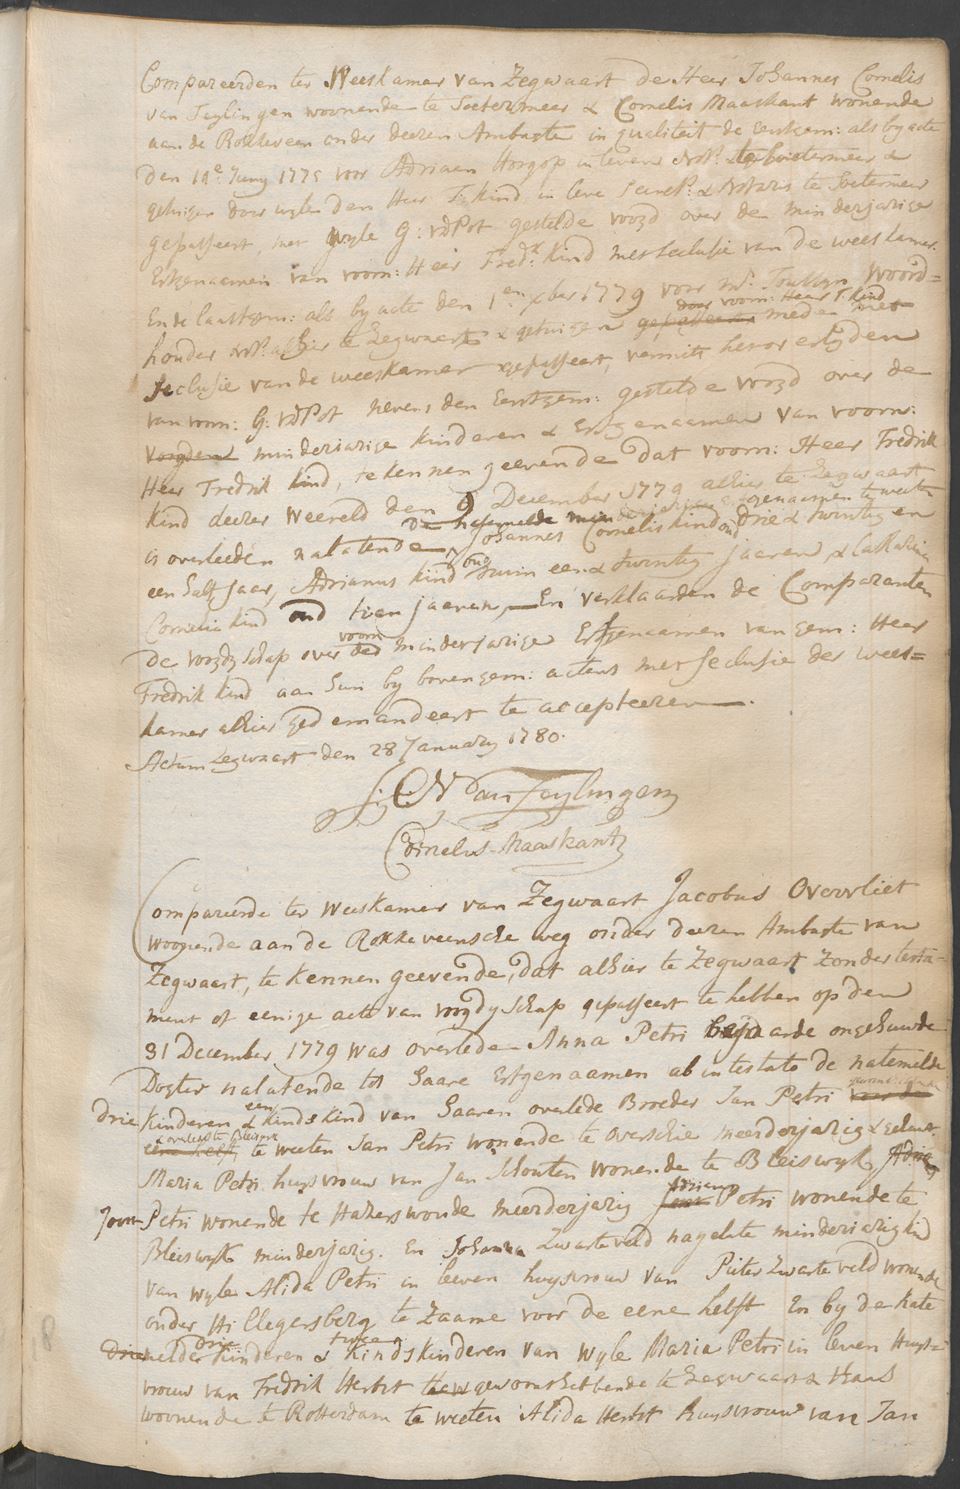 Compareerden ter Weeskamer van Zegwaart de Heer Johannes Cornelis
van Teylingen woonende te Soetermeer & Cornelis Maaskant wonende
aan de Rokkeveen onder deezen Ambagte in qualiteit de eerstgem: als by acte
den 19e Juny 1775 voor Adriaen Horgop in leven Nots. te Soetermeer &
getuigen door wyle den Heer F: Kind in leve Secrets. & Notaris te Soetermeer
gepasseert, met wyle G: vd Pot gestelde voogd over de minderjarige
Erfgenaemen van voorn: Heer Fredk. Kind met seclusie van de weeskamer
En de laatstgem: als by acte den 1en xber 1779 voor Mr. Woord=
door voorn: Heer F. Kind
houder Nots. alhier te Zegwaert & getuigen gepasseert mede met
seclusie van de weeskamer gepasseert, vermits het overlyden
van voorn: G: vd Pot nevens den Eerstgem: gestelde voogd over de
voogden minderjarige kinderen & Erfgenaamen van voorn:
Heer Fredrik Kind, te kennen geevende dat voorn: Heer Fredrik
Kind deezer Weereld den 9 December 1779 alhier te Zegwaart
is overleeden nalatende Johannes Cornelis Kind oud drie & twintig en
een half jaar, Adrianus Kind oud ruim een & twintig jaeren, & Catharina
Cornelia Kind oud tien jaeren, En verklaarden de Comparanten
voorn
de voogdyschap over de minderjarige Erfgenaamen van gem: Heer
Fredrik Kind aan hun by bovengem: actens met seclusie der wees=
kamer alhier gedemandeert te accepteeren.
Actum Zegwaart den 28 January 1780.
J: C: V van Teylingen
Cornelis Maaskant
Compareerde ter Weeskamer van Zegwaart Jacobus Overvliet
woonende aan de Rokkeveensche weg onder deezen Ambagte van
Zegwaart, te kennen geevende, dat alhier te Zegwaart zonder testa-
ment of eenige acte van voogdyschap gepasseert te hebben op den
31 December 1779 was overlede Anna Petri bejaarde ongehuwde
Dogter nalatende tot haare Erfgenaamen ab intestato de natemelde
drie kinderen & een kindskind van haaren overlede Broeder Jan Petri
& overleden te Bleiswyk
te weeten Jan Petri wonende te Overschie meerderjarig
Maria Petri huysvrouw van Jan Schouten wonende te Bleiswyk,
Petri wonende te Hazerswoude meerderjarig Adriana Petri wonende te
Bleiswyk minderjarig. En Johanna Zwarteveld nagelate minderjarig kind
van wyle Alida Petri in leeven huysvrouw van Pieter Zwarteveld wonende
onder Hillegersberg te zaame voor de eene helft En by de nate
melde drie kinderen & twee kindskinderen van wyle Maria Petri in leven Huys=
vrouw van Fredrik Herbst gewoont hebbende te Zegwaart & thans
woonende te Rotterdam te weeten Alida Herbst huysvrouw van Jan